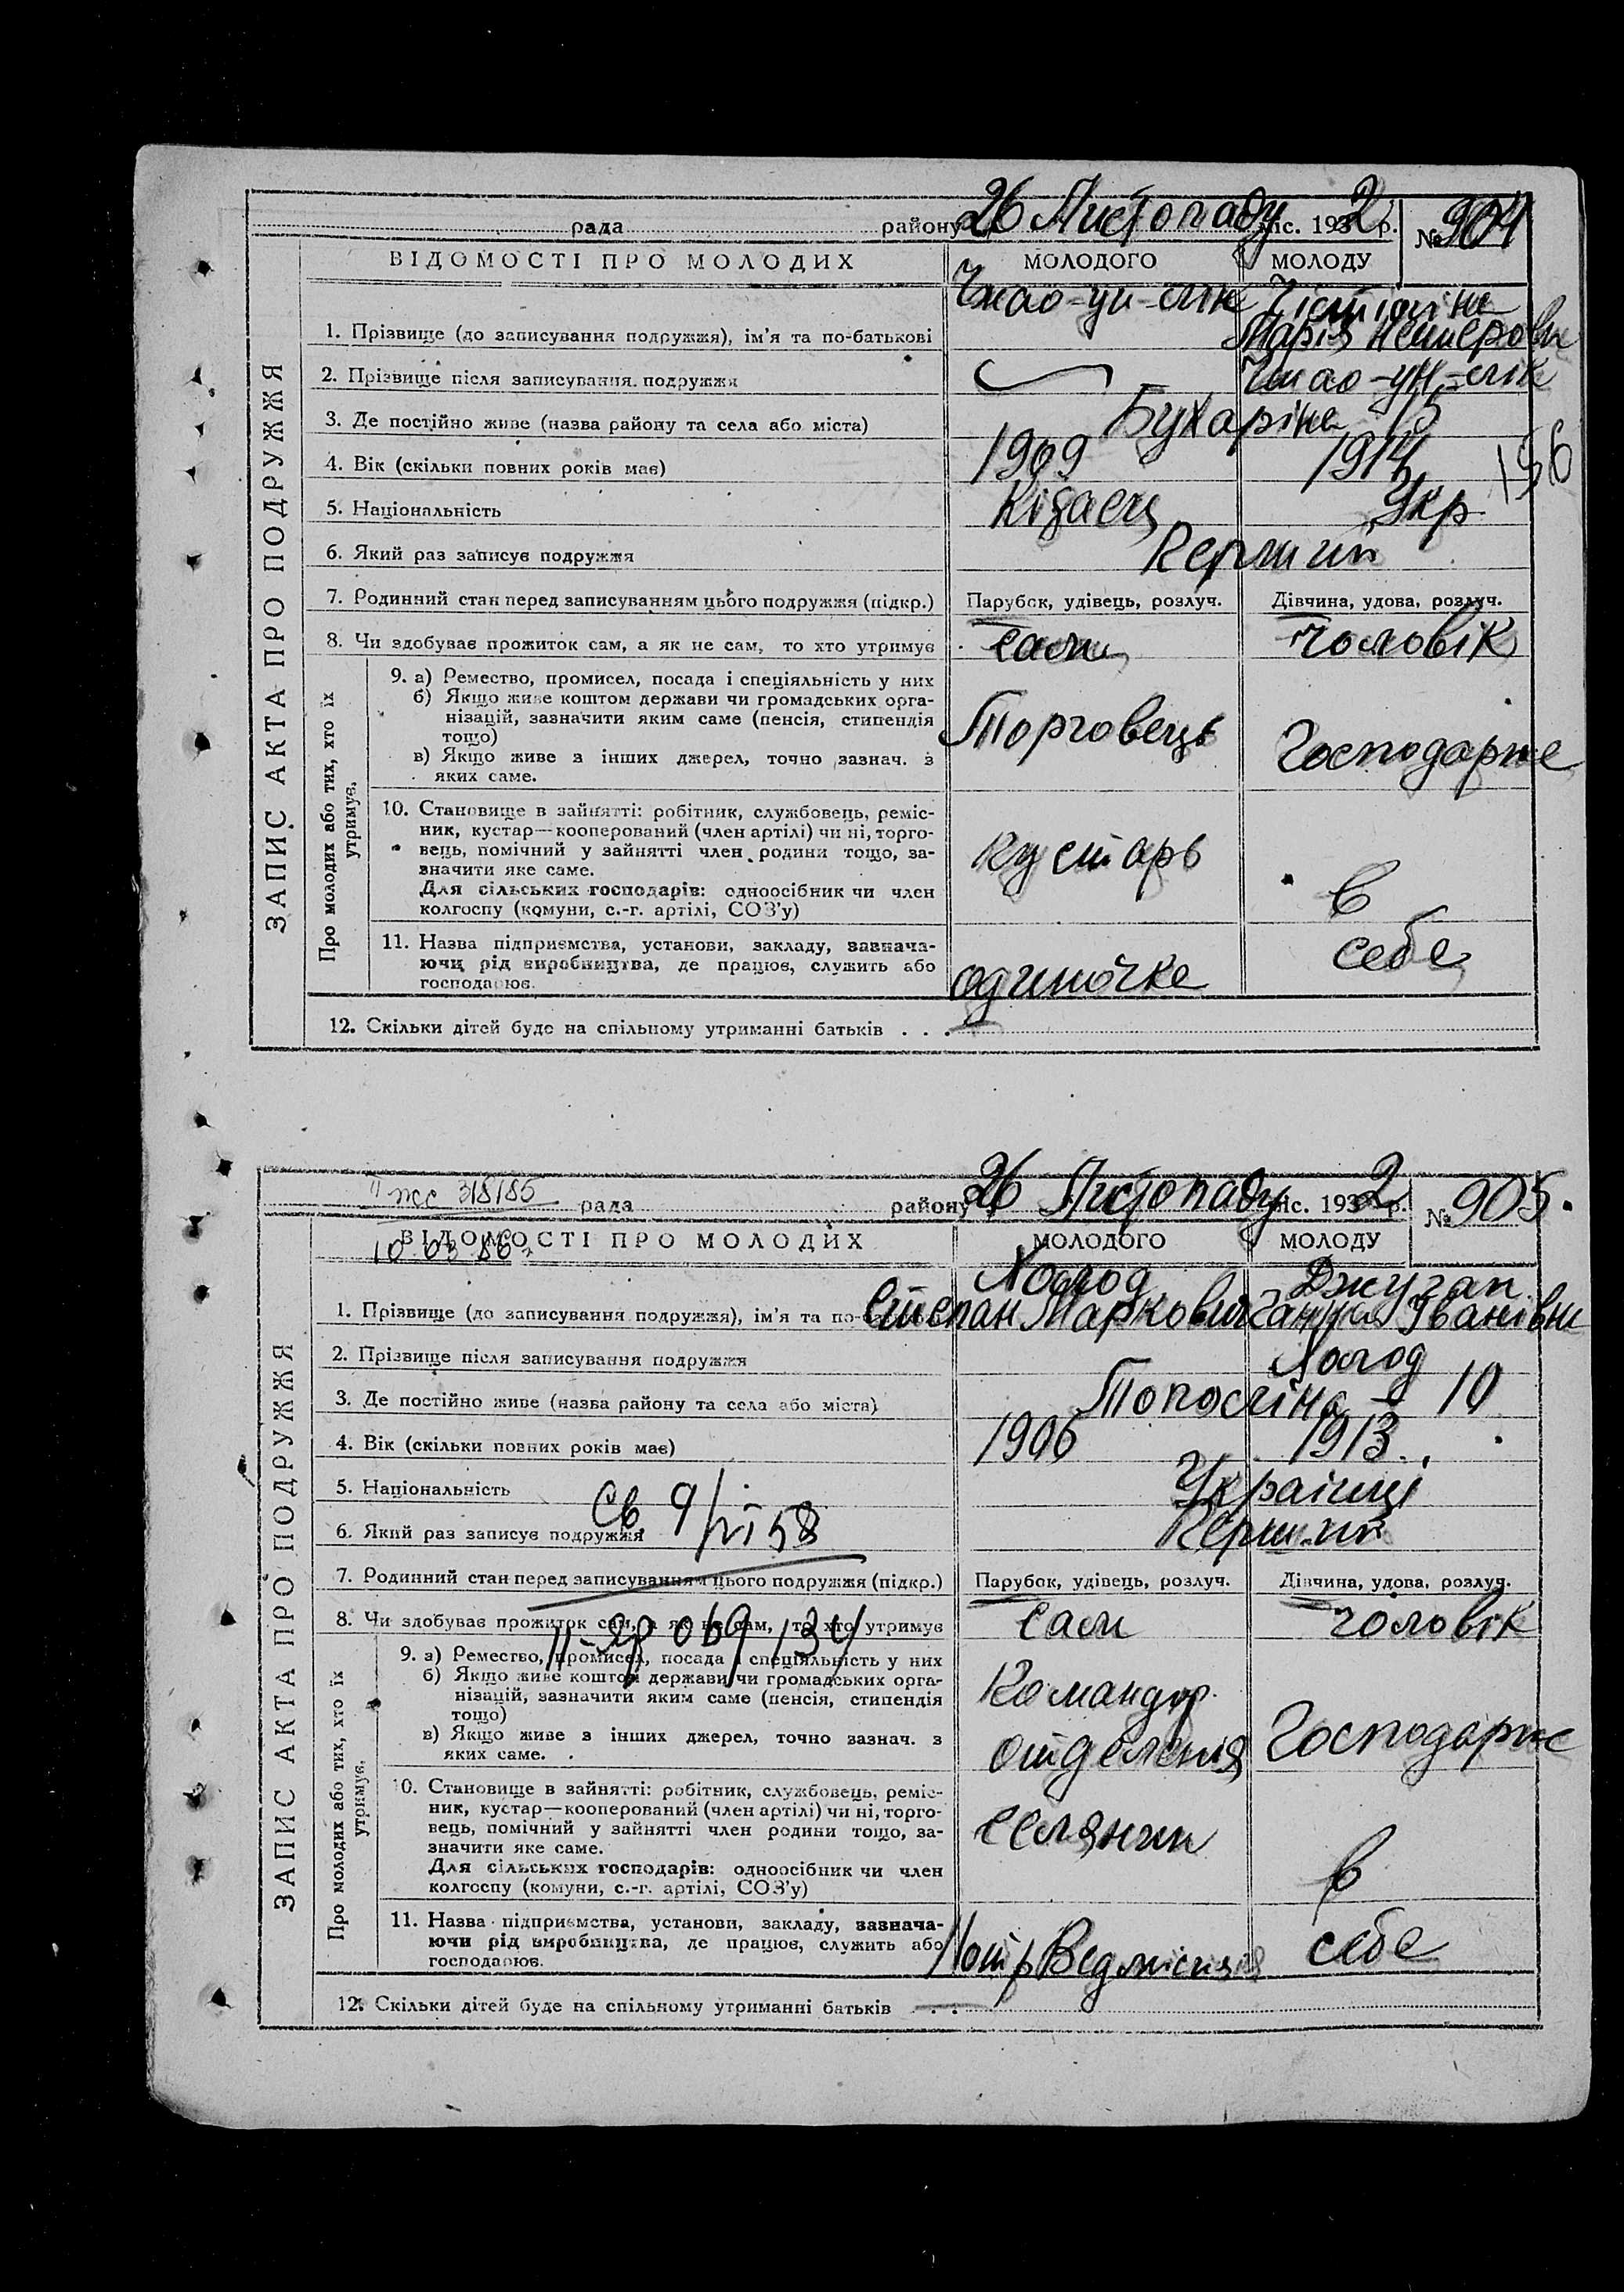 рада району 26 Листопаду міс. 1932 р. № 904
ВІДОМОСТІ ПРО МОЛОДИХ МОЛОДОГО МОЛОДУ
ЗАПИС АКТА ПРО ПОДРУЖЖЯ
1. Прізвище (до записування подружжя), ім'я та по-батькові
Марія
2. Прізвище після записування подружжя
3. Де постійно живе (назва району та села або міста) Бухаріна 15
4. Вік (скільки повних років має) 1909 1914 156
5. Національність Кітаєць Укр.
6. Який раз записує подружжя Перший
7. Родинний стан перед записуванням цього подружжя (підкр.) Парубок, удівець, розлуч. Дівчина, удова, розлуч.
8. Чи здобуває прожиток сам, а як не сам, то хто утримує сам чоловік
Про молодих або тих, хто їх утримує.
9. а) Ремество, промисел, посада і спеціяльність у них
б) Якщо живе коштом держави чи громадських орга-
нізацій, зазначити яким саме (пенсія, стипендія
тощо) Торговець Господарює
в) Якщо живе з інших джерел, точно зазнач. з
яких саме.
10. Становище в зайнятті: робітник, службовець, реміс-
ник, кустар—кооперований (член артілі) чи ні, торго-
вець, помічний у зайнятті член родини тощо, за- кустарь
значити яке саме.
Для сільських господарів: одноосібник чи член в
колгоспу (комуни, с.-г. артілі, СОЗ'у)
11. Назва підприємства, установи, закладу, зазнача- себе
ючи рід виробництва, де працює, служить або
господарює. одиночка
12. Скільки дітей буде на спільному утриманні батьків . . . —
рада району 26 Листопаду міс. 1932 р. № 905.
ВІДОМОСТІ ПРО МОЛОДИХ МОЛОДОГО МОЛОДУ
ЗАПИС АКТА ПРО ПОДРУЖЖЯ
Холод Джуган
1. Прізвище (до записування подружжя), ім'я та по-батькові Степан Маркович Ганна Іванівна
2. Прізвище після записування подружжя Холод
3. Де постійно живе (назва району та села або міста) 10
4. Вік (скільки повних років має) 1906 1913
5. Національність Українці
6. Який раз записує подружжя Перший
7. Родинний стан перед записуванням цього подружжя (підкр.) Парубок, удівець, розлуч. Дівчина, удова, розлуч.
8. Чи здобуває прожиток сам, а як не сам, то хто утримує сам чоловік
Про молодих або тих, хто їх утримує.
9. а) Ремество, промисел, посада і спеціяльність у них
б) Якщо живе коштом держави чи громадських орга- Командир
нізацій, зазначити яким саме (пенсія, стипендія
тощо)
в) Якщо живе з інших джерел, точно зазнач. з отделенія Господарює
яких саме.
10. Становище в зайнятті: робітник, службовець, реміс-
ник, кустар—кооперований (член артілі) чи ні, торго-
вець, помічний у зайнятті член родини тощо, за- селянин
значити яке саме.
Для сільських господарів: одноосібник чи член в
колгоспу (комуни, с.-г. артілі, СОЗ'у)
11. Назва підприємства, установи, закладу, зазнача-
ючи рід виробництва, де працює, служить або себе
господарює.
12. Скільки дітей буде на спільному утриманні батьків — . .